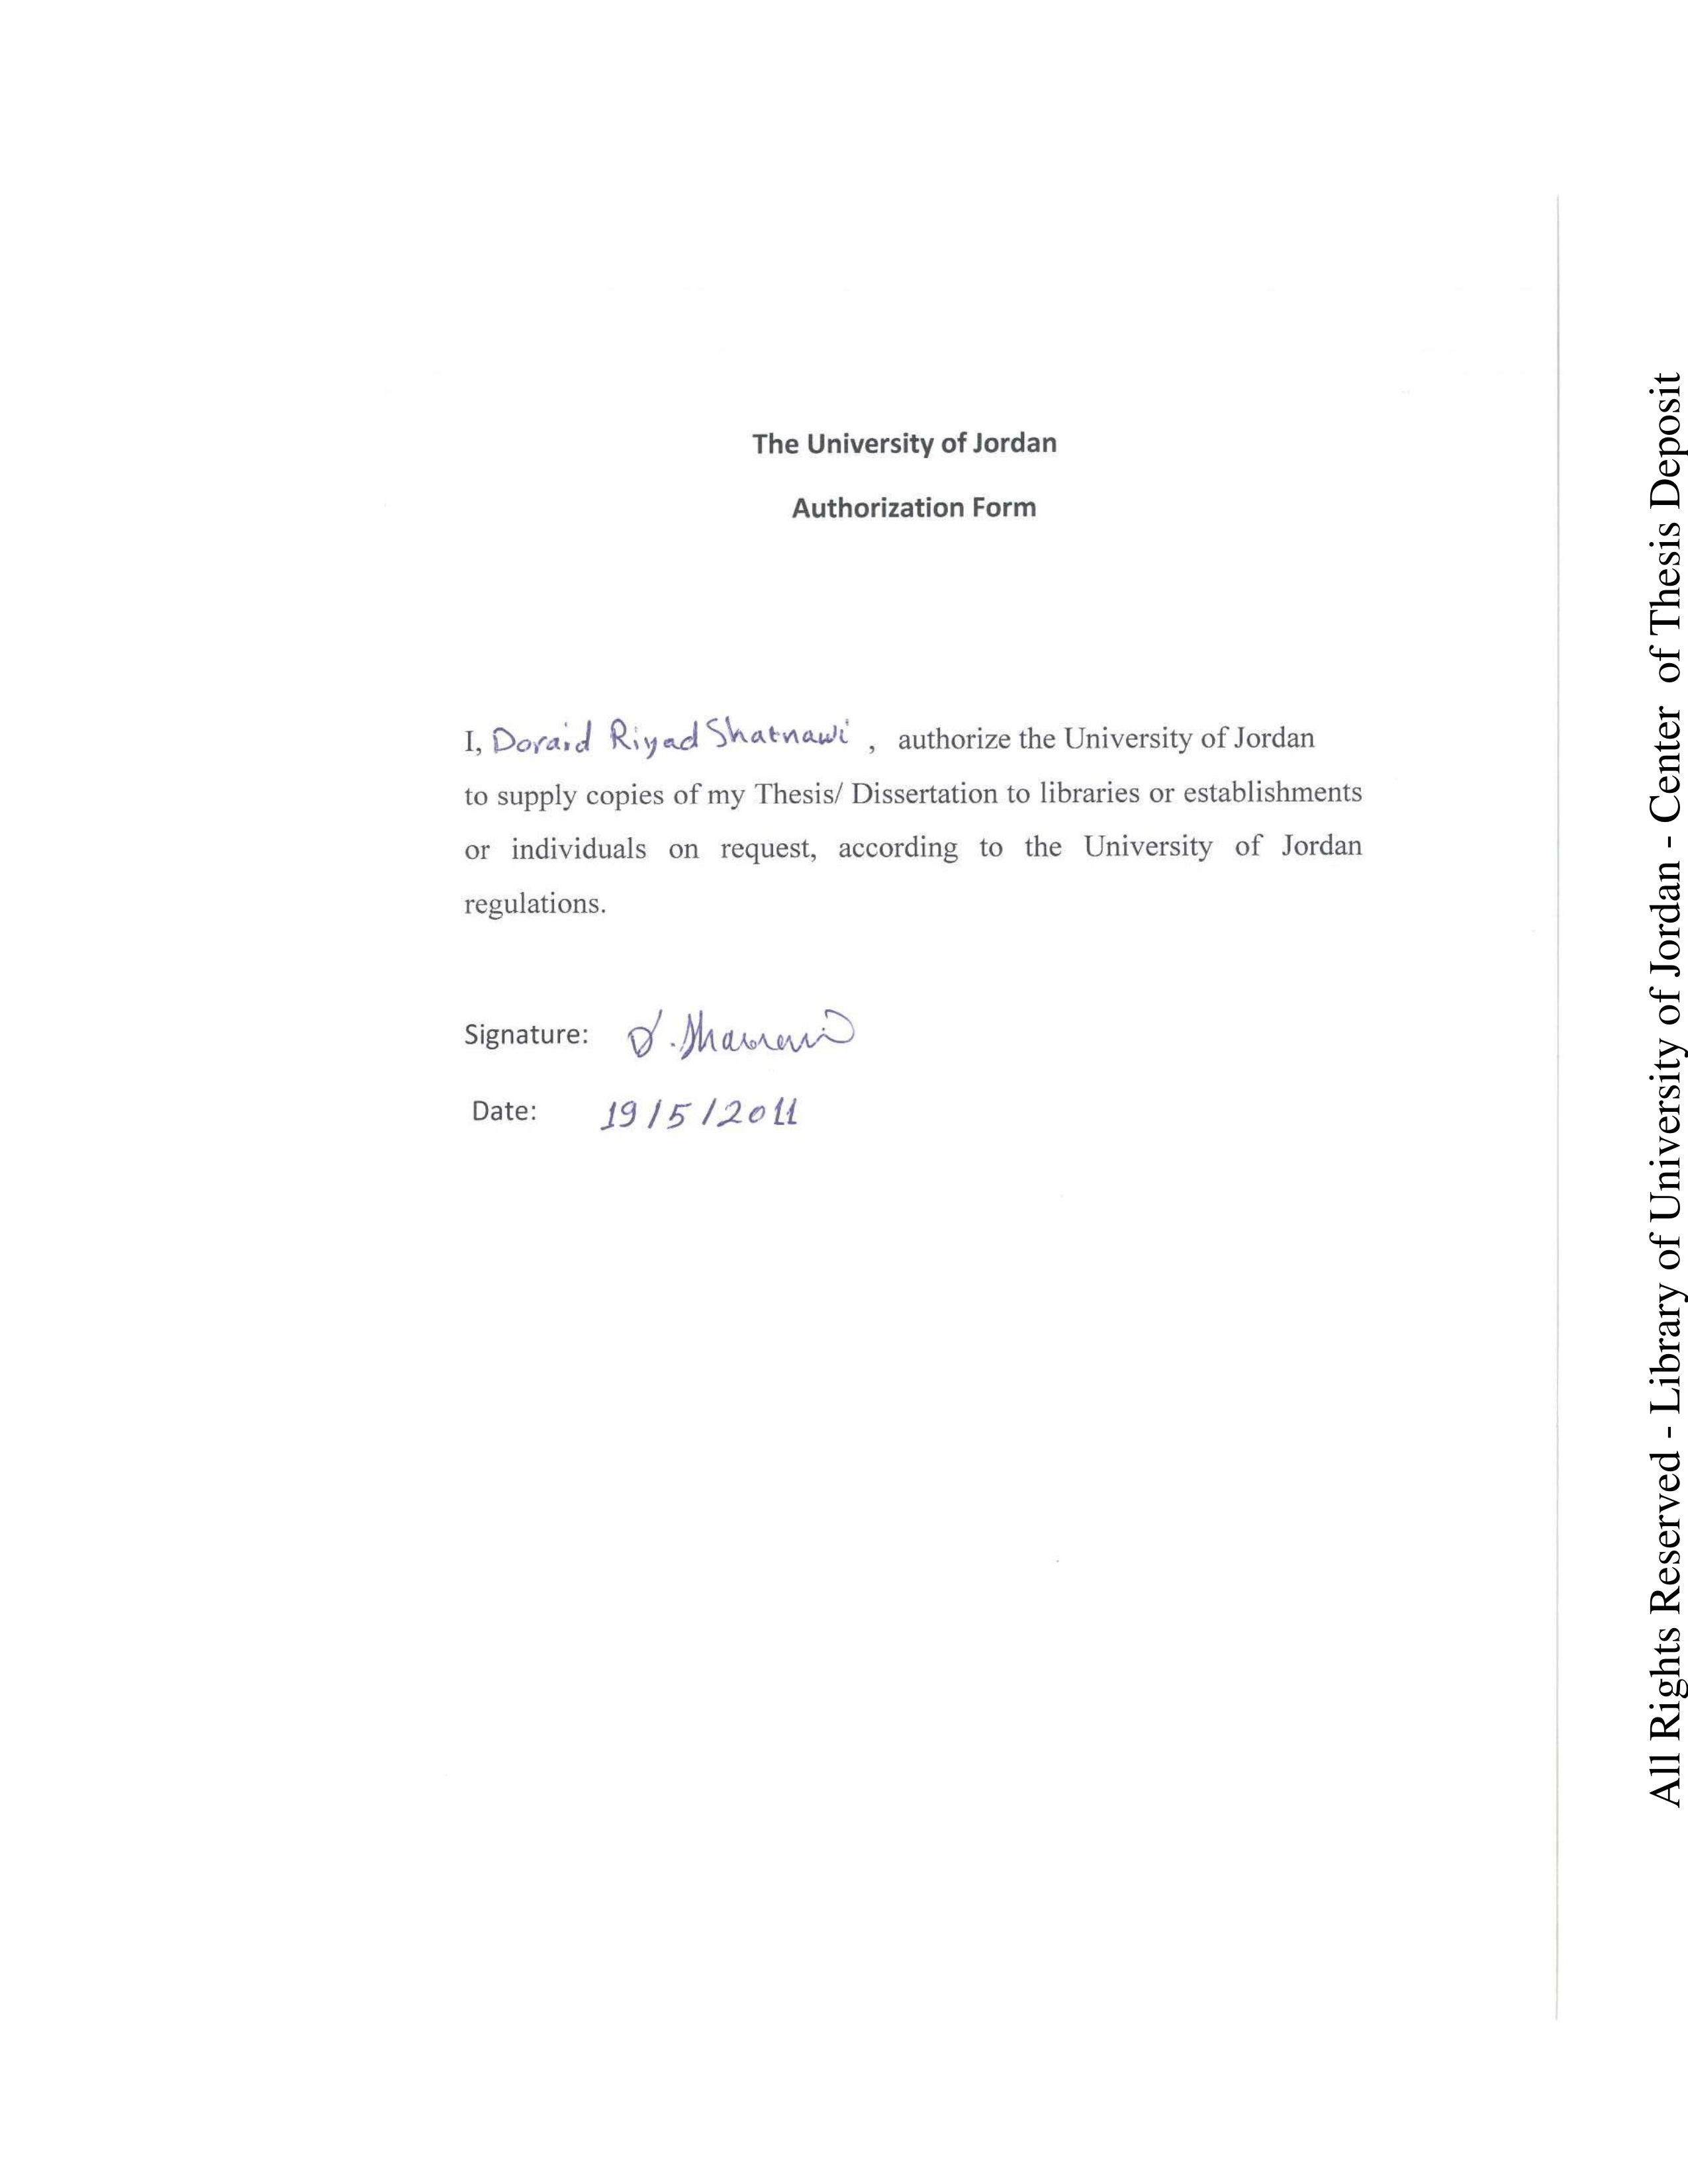 The University of Jordan
Authorization Form
I, Doraid Riyad Shatnawi , authorize the University of Jordan
to supply copies of my Thesis/ Dissertation to libraries or establishments
or individuals on request, according to the University of Jordan
regulations.
Signature: D. Shatnawi
Date: 19/5/2011
All Rights Reserved - Library of University of Jordan - Center of Thesis Deposit